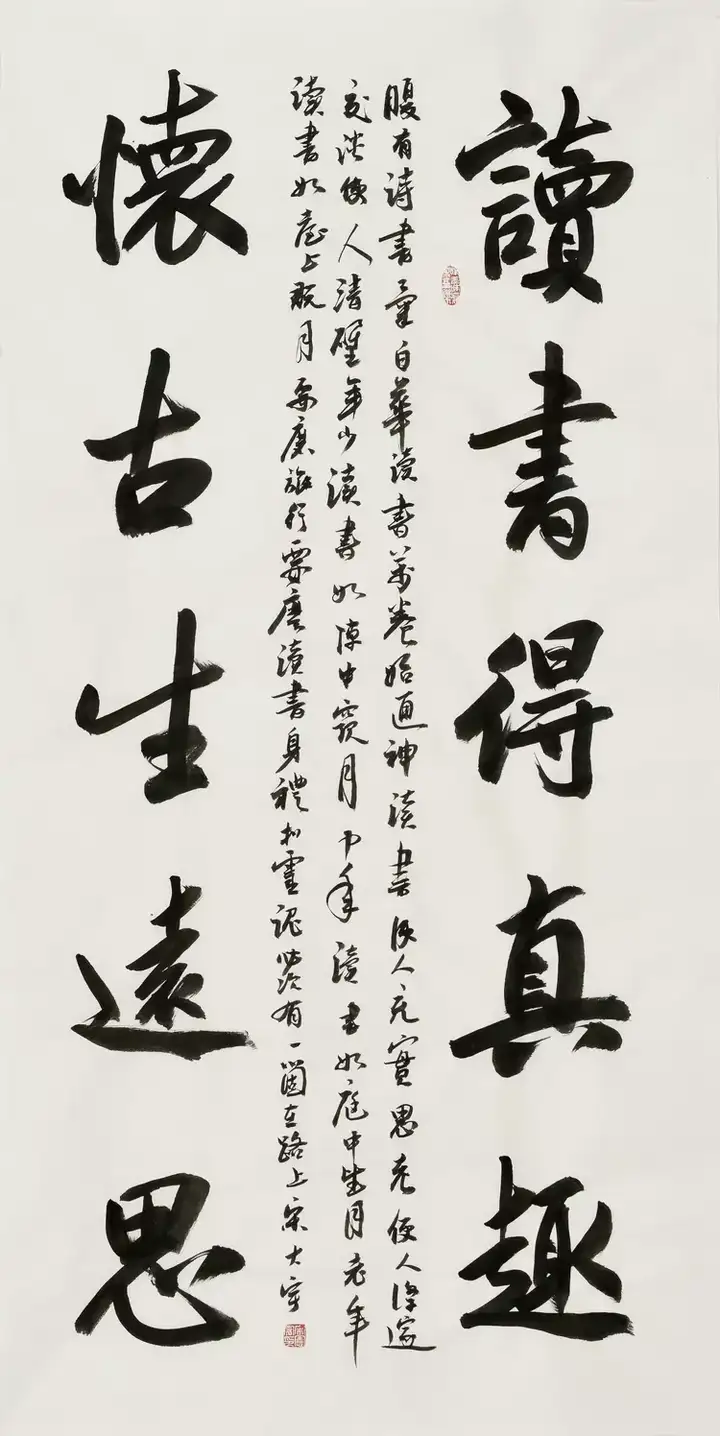 讀書得真趣
腹有詩書氣自華讀書萬卷始通神讀書使人充實思考使人深邃
交談使人清醒年少讀書如隙中窺月中年讀書如庭中望月老年
讀書如臺上玩月要麼旅行要麼讀書身體和靈魂必須有一箇在路上宋大
懷古生遠思